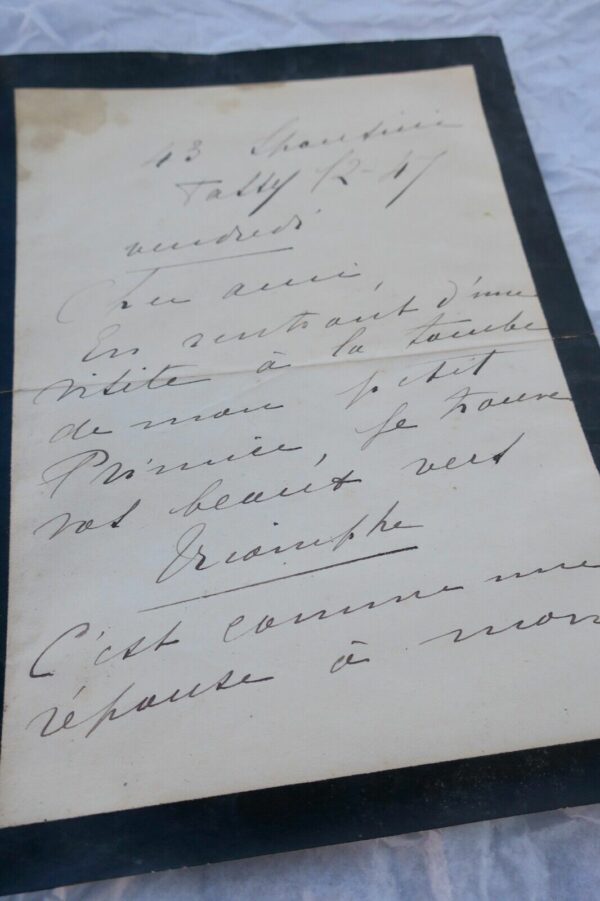 43 Spontini
Passy 12-47
vendredi
Cher ami,
En rentrant d'une
visite à la tombe
de mon petit
je trouve
vos beaux vers
Triomphe
C'est comme une
réponse à mon